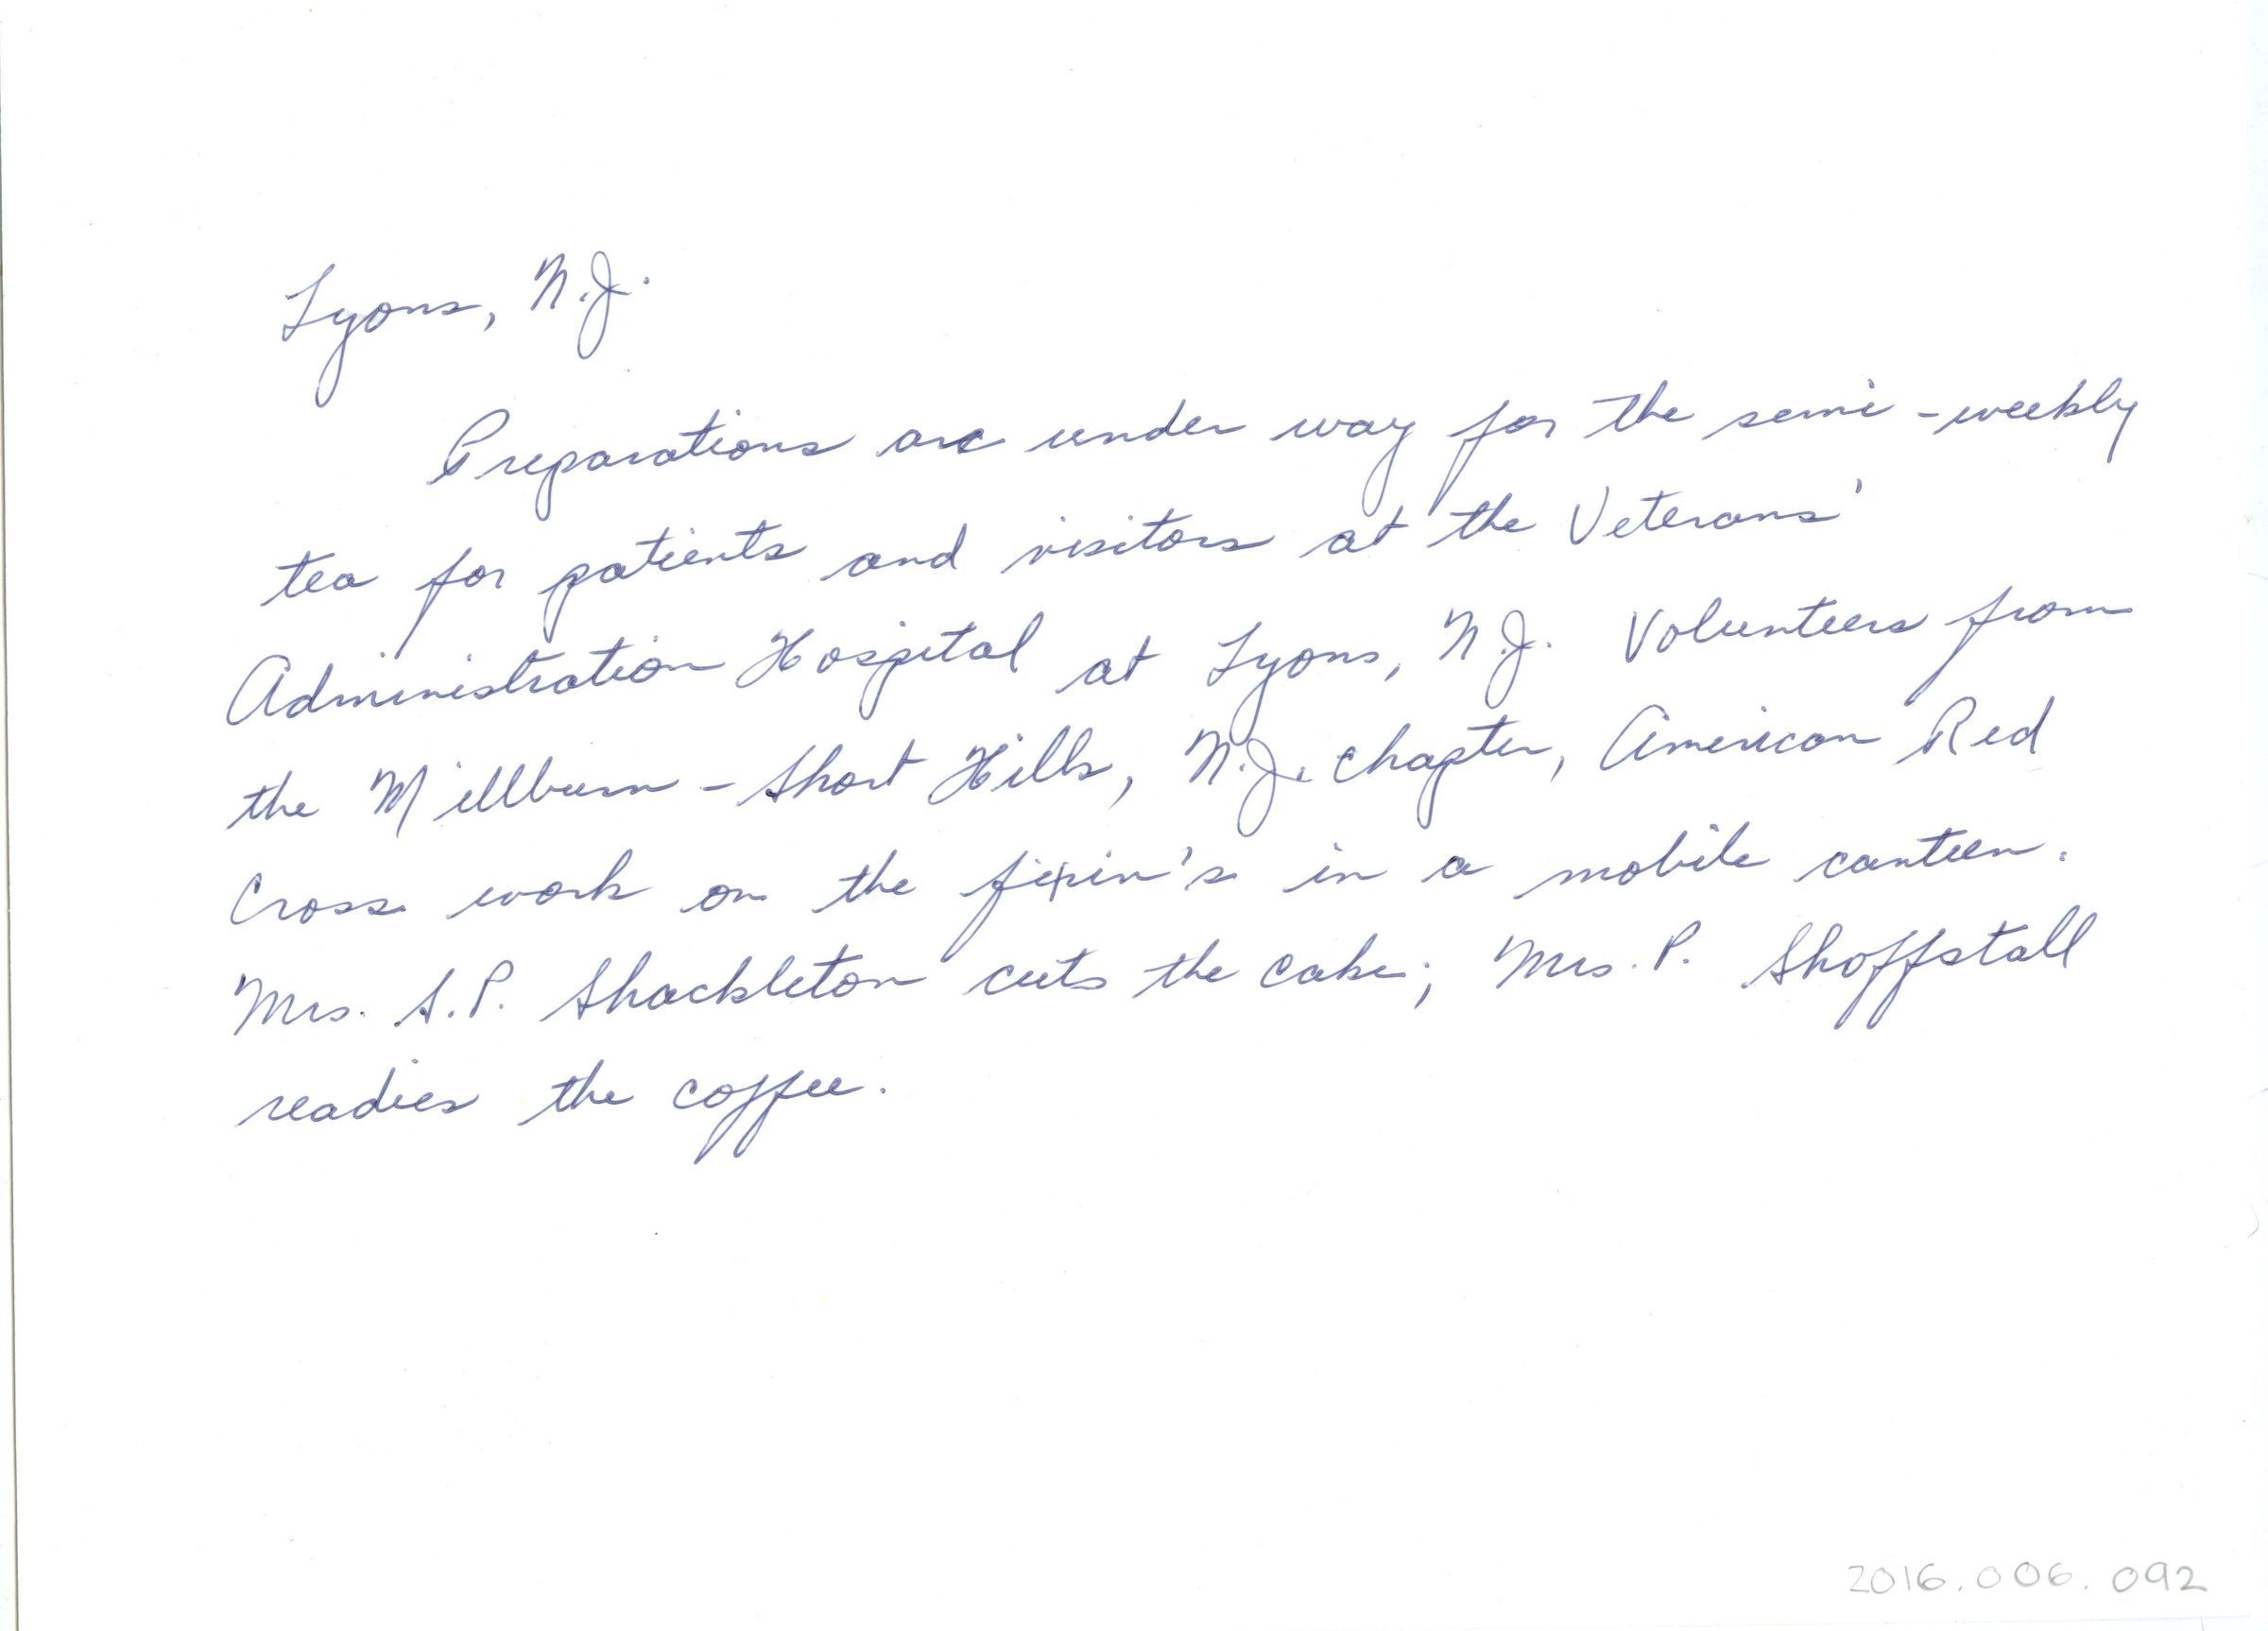 Lyons, N.J.
Preparations are under way for the semi-weekly
tea for patients and visitors at the Veterans'
Administration Hospital at Lyons, N.J. Volunteers from
the Millburn-Short Hills, N.J. chapter, American Red
Cross work on the fixin's in a mobile canteen.
Mrs. S.P. Shackleton cuts the cake; Mrs. P. Shoffstall
readies the coffee.
2016.006.092